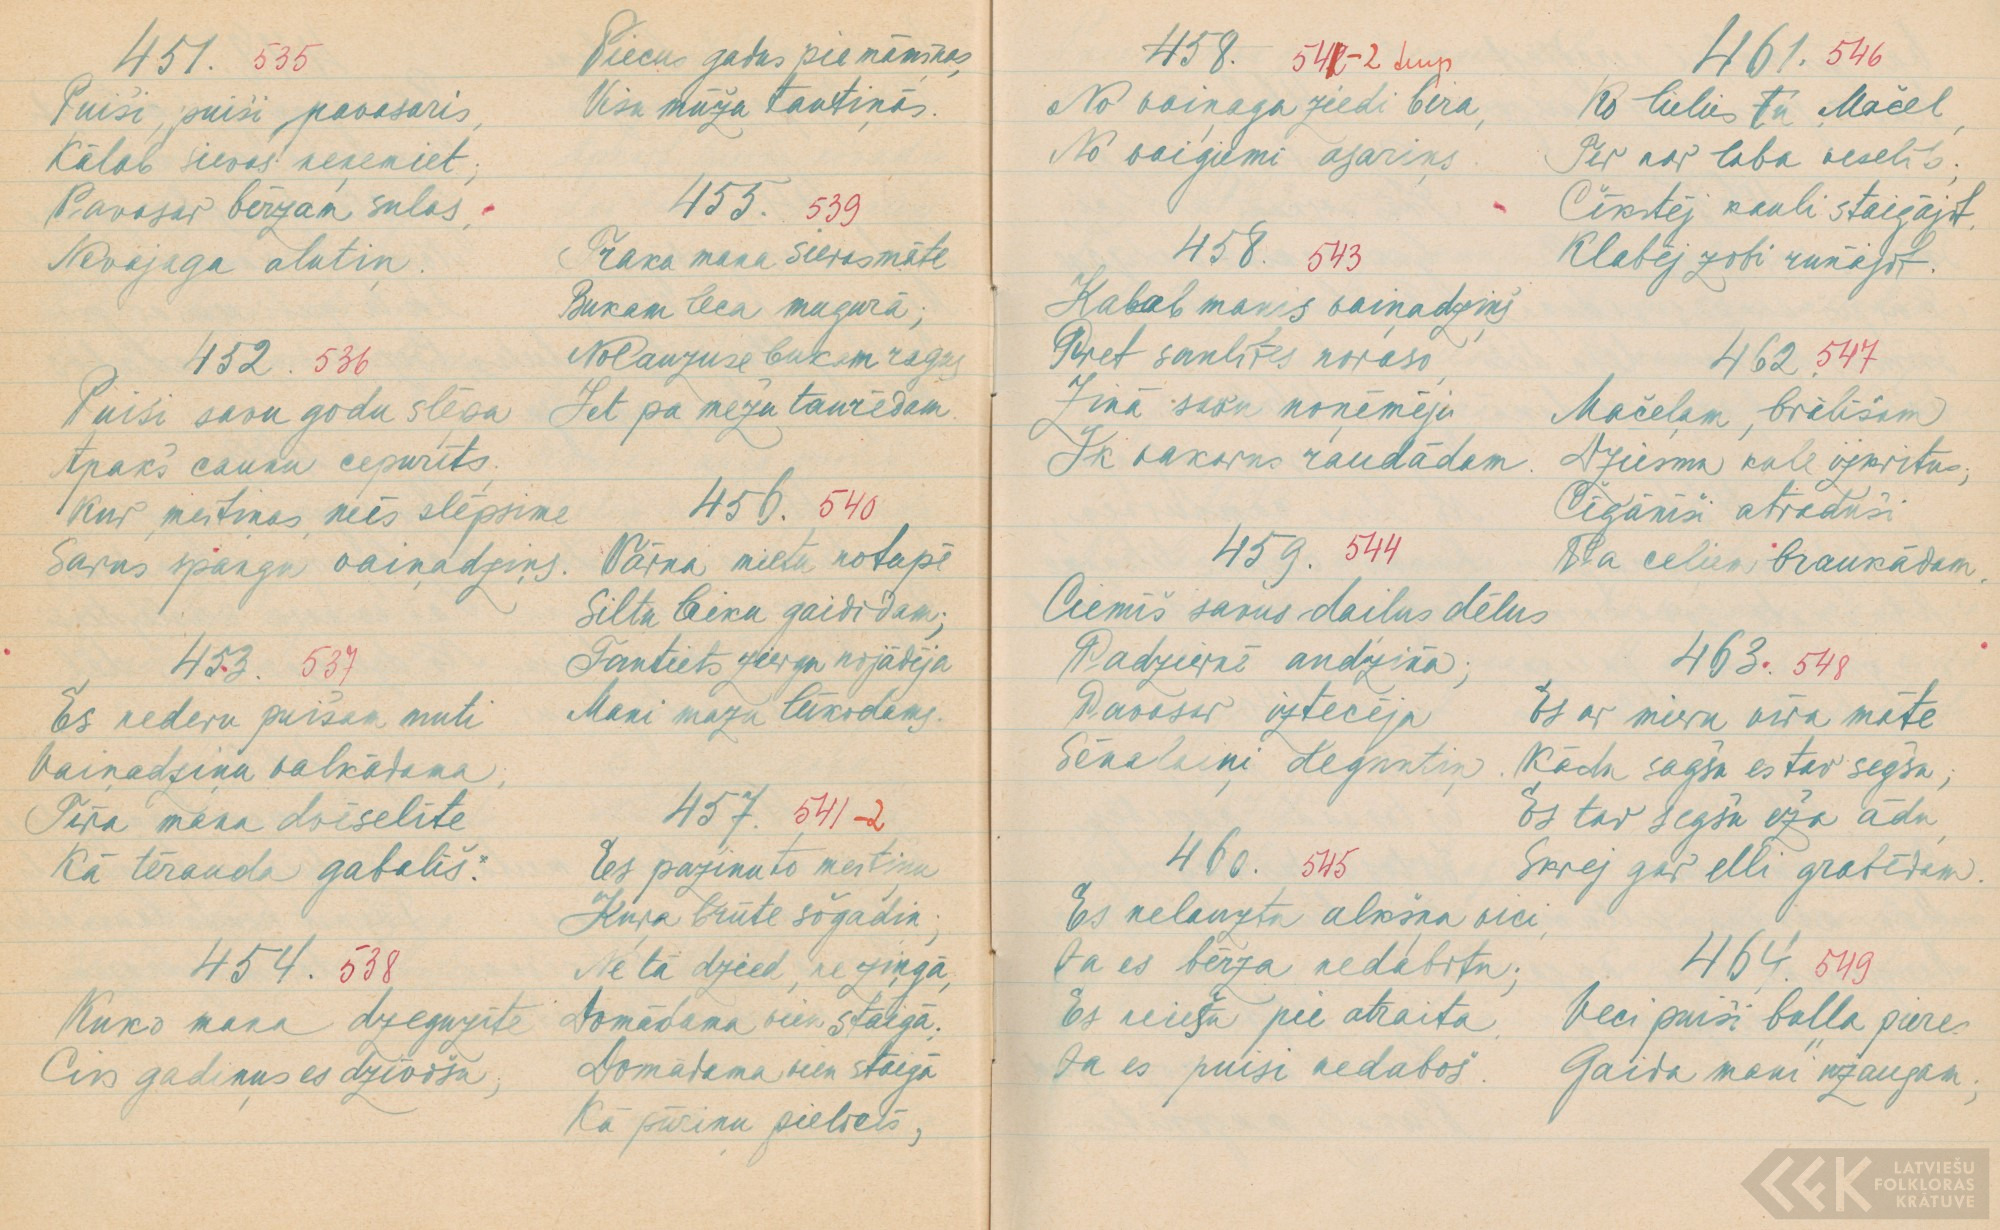 451. 535
Puiši, puiši pavasaris,
Kālab sievas neņemiet;
Pavasar bērzam sulas,
Nevajaga alutiņ.
452. 536
Puiši savu godu slēpa
Apakš caunu cepurīts.
Kur, meitiņas, mēs slēpsime
Savus spangu vaiņadziņs.
453. 537
Es nedevu puišam muti
Vaiņadziņu valkādama,
Tīra mana dvēselīte
Kā tērauda gabališ.
454. 538
Kūko mana dzeguzīte
Cik gadiņus es dzīvošu;
Piecus gadus pie māmiņas,
Visu mūžu tautiņās.
455. 539
Traka mana sievasmāte
Bukam leca mugurā;
Nolauzuse bukam ragus
Iet pa mežu taurēdam.
456. 540
Vārna mietu notupē
Siltu laiku gaidīdam;
Tautiets zirgu nojādēja
Mani mazu lūkodams.
457. 541-2
Es pazinu to meitiņu
Kura brūte šōgadiņ;
Ne tā dzied, ne ziņgā,
Domādama vien staigā;
Domādama vien staigā
Kā pūriņu pielocīs,
458. 541-2 turp
No vaiņaga ziedi bira,
No vaigiemi asariņs.
458. 543
Kabab manis vaiņadziņš
Pret saulītes noraso,
Zinā savu noņēmēju
Ik vakarus raudādam.
459. 544
Ciemiš savus dailus dēlus
Padzirnē audzina;
Pavasar iztecēja
Sēnalaiņi deguntiņ.
460. 545
Es nelauztu alkšņa vici,
Ja es bērza nedabūtu;
Es neiešu pie atraita,
Ja es puisi nedaboš.
461. 546
Ko lielies tu, Mačel,
Tev nav laba veselīb;
Čīkstēj kauli staigājot,
Klabēj zobi runājot.
462. 547
Mačeļam, brālīšam
Dziesmu kule izkritus;
Čigāniši atraduši
Pa celiem braukādam.
463. 548
Es ar mieru vīra māte
Kādu sagšu es tav segšu;
Es tav segšu eža ādu,
Skrej gar elli grabēdam.
464. 549
Veci puiši balla pieres
Gaida mani uzaugam;
LATVIEŠU
FOLKLORAS
KRĀTUVE